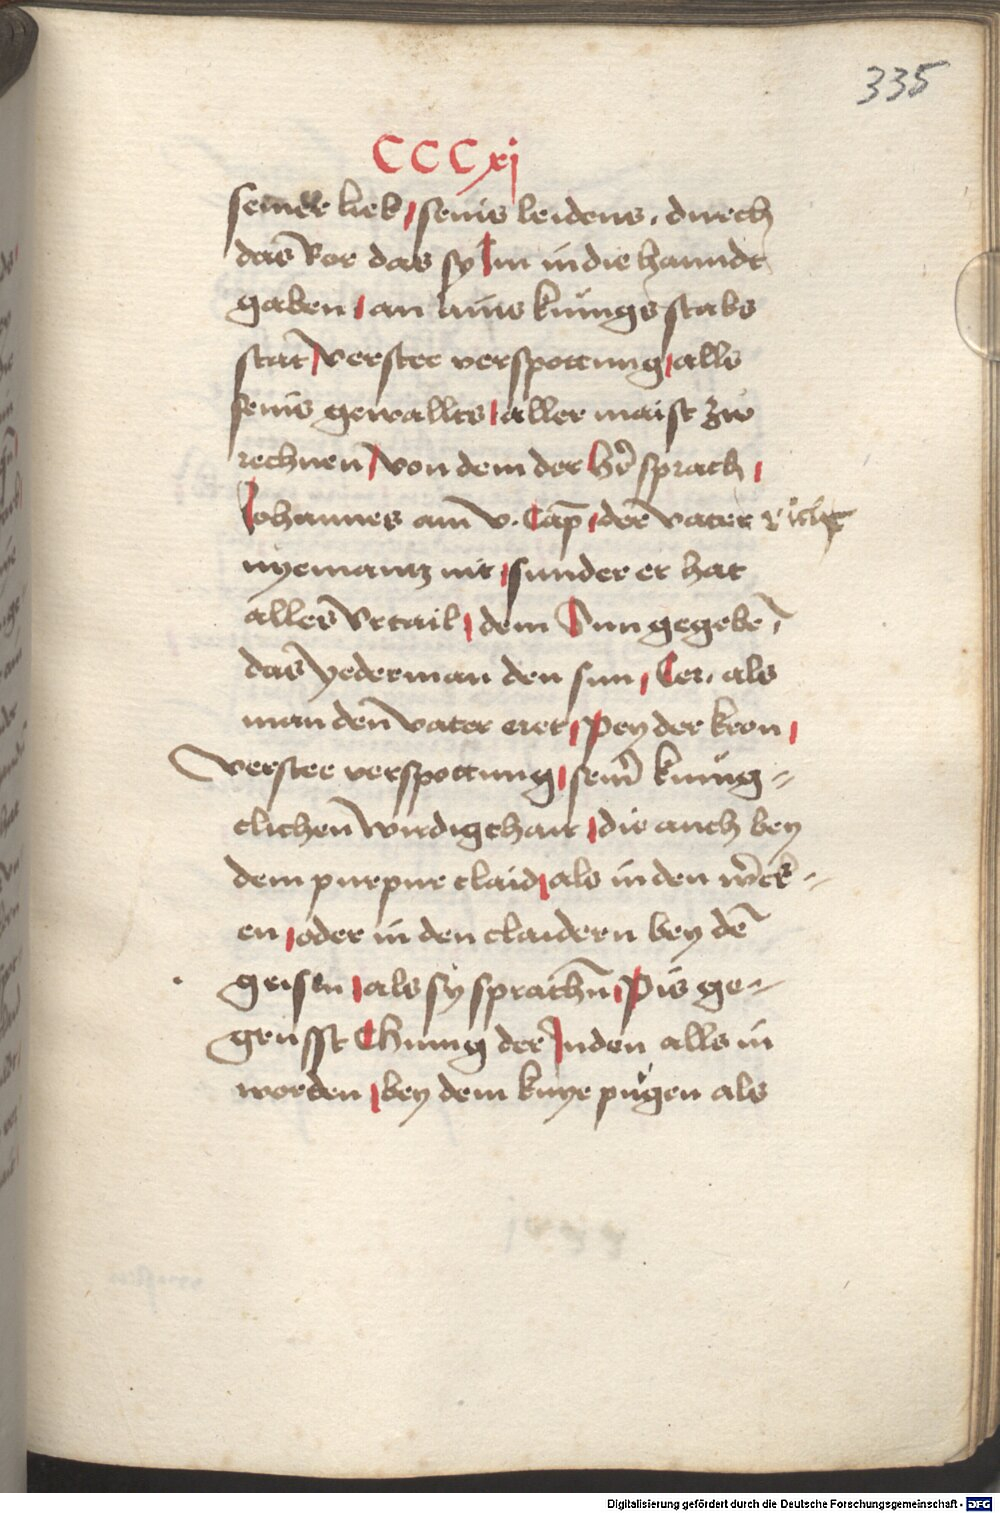 335
CCCxj
seinder lieb / senis leidens. durch
das Ror das sy Im in die hanndt
gaben / an ainis kunigs stabs
stat / verstee verspottung / alls
senis gewallts / aller maist zw
rechnen / von dem der h̄r sprach /
Johannes am v. Cap̄ / der vater richt
nyemantz nit / sunder er hat
alles Vrtail / dem Sun gegebē /
das yederman den sun / Eer. als
man den vater eret / Pey der kron /
verstee verspottung / sein̄ kunig=
clichen wirdigchait / die auch bey
dem purpur claid / als in den w̄ck=
en / oder in den claidern bey dē
geisln / als sy sprachn̄ / Pis ge=
grüsst Chunig der Juden alls in
worden / bey dem knye pugen als
Digitalisierung gefördert durch die Deutsche Forschungsgemeinschaft - DFG